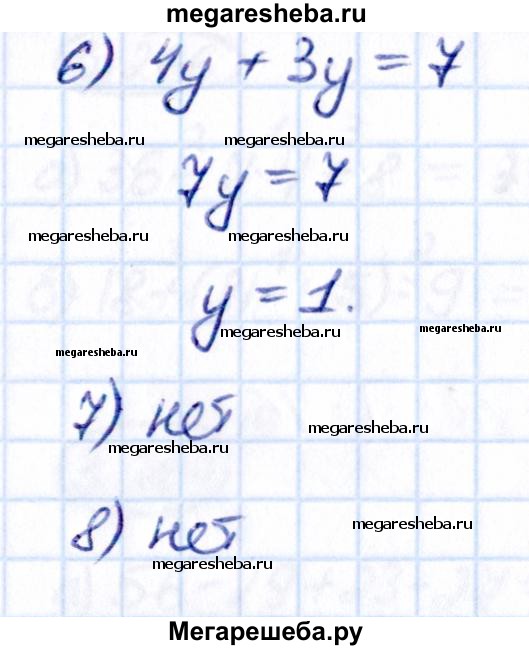 megaresheba.ru
6) 4y + 3y = 7
megaresheba.ru megaresheba.ru
7y = 7
megaresheba.ru megaresheba.ru
y = 1.
megaresheba.ru megaresheba.ru
megaresheba.ru
7) нет
megaresheba.ru
megaresheba.ru
8) нет
megaresheba.ru
megaresheba.ru
Мегарешеба.ру